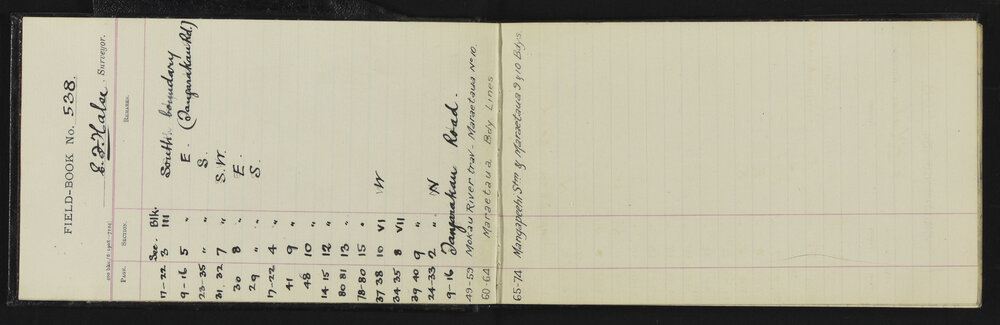 FIELD-BOOK No. 538.
S. J. Halse. Surveyor.
PAGE. SECTION. REMARKS.
Sec. Blk.
17-22 3 III South boundary
9-16 5 " E. (Tangarakau Rd.)
23-35 " " S.
31 32 7 " S.W.
30 8 " E.
29 " " S.
17-22 4 "
41 9 "
48 10 "
14-15 12 "
80 81 13 "
78-80 15 "
37 38 10 VI W
34-35 8 VII
39 40 9 "
24-33 2 " N
9-16 Tangarakau Road.
49-59 Mokau River trav - Maraetaua No 10.
60-64 Maraetaua Bdy Lines
65-74 Mangapeehi Stm & Maraetaua 9 & 10 Bdys.